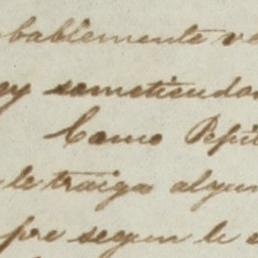 obablemente ve
ey sometiendo
Como Pepi
le traiga algun
pre segun le